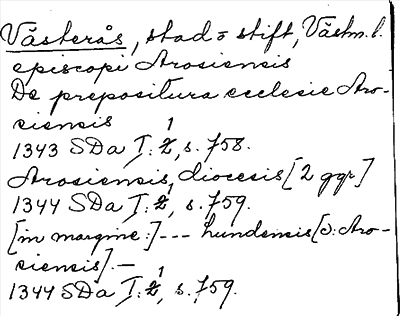 Västerås, stad o stift, Västm. l.
episcopi Arosiensis
De prepositura ecclesie Aro-
siensis
1343 SDa I:1, s. 758.
Arosiensis diocesis [2 ggr]
1344 SDa I:1, s. 759.
[in margine:] --- Lundensis [o: Aro-
siensis]. —
1344 SDa I:1, s. 759.